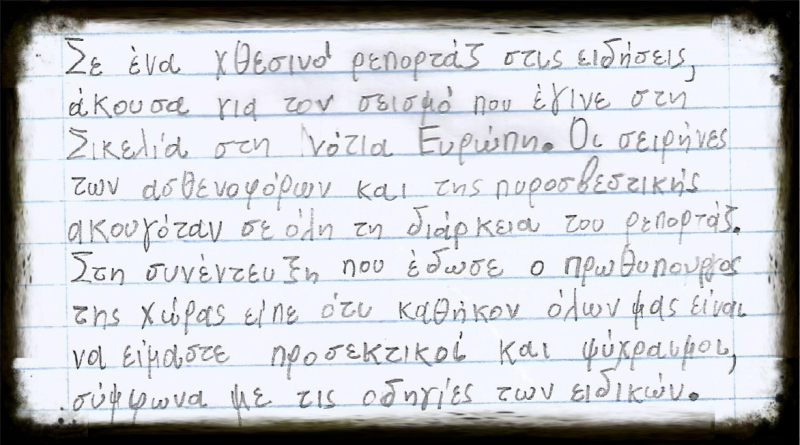 Σε ένα χθεσινό ρεπορτάζ στις ειδήσεις,
άκουσα για τον σεισμό που έγινε στη
Σικελία στη Νότια Ευρώπη. Οι σειρήνες
των ασθενοφόρων και της πυροσβεστικής
ακουγόταν σε όλη τη διάρκεια του ρεπορτάζ.
Στη συνέντευξη που έδωσε ο πρωθυπουργός
της χώρας είπε ότι καθήκον όλων μας είναι
να είμαστε προσεκτικοί και ψύχραιμοι,
σύμφωνα με τις οδηγίες των ειδικών.